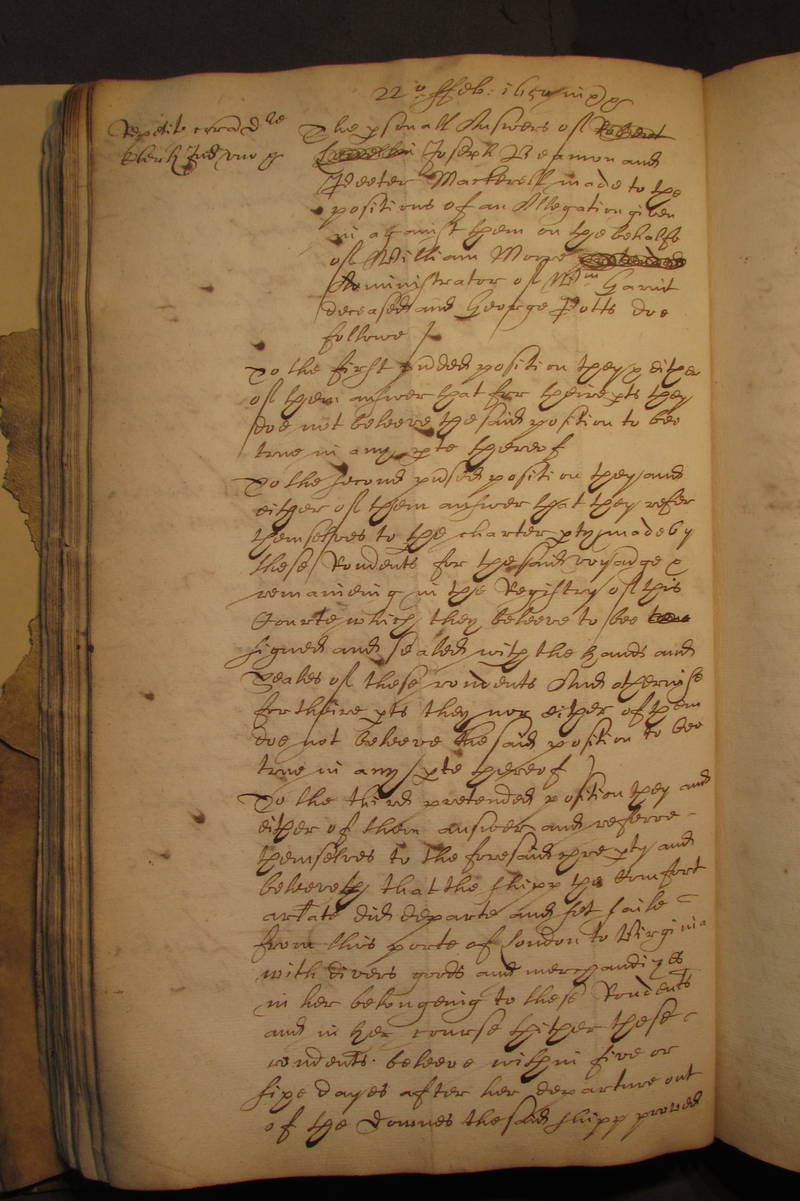 22º ffeb: 165
Repetit coram d re
Clerk Jud
The psonall Answers of Robert
Joseph Beamon and
Peeter Mackerell made to the
positions of an Allegation given
in against them on the behalfe
of William Moore pretended
Administrator of Wm Garrit
deceased and George Potts doe
followe /
To the first pnded position they & either
of them answer that for theire pts they
doe not beleeve the said position to bee
true in any pte thereof
To the second position they and
either of them answer that they refer
themselves to the charter pty made by
these Rondents for the said voyadge &
remaineing in the Registry of this
Courte which they beleeve to bee true
signed and sealed with the hands and
Seales of these rondents And otherwise
for theire pts they nor either of them
doe not beleeve the said position to bee
true in any pte thereof /
To the third pretended position they and
either of them answer and referre
themselves to the foresaid pty and
beleeveth that the shipp the Comfort
arlate did departe and set saile
from this porte of London to Virginia
with divers goods and merchandizes
in her belonging to these Rondents
and in her course thither these
rondents beleeve within five or
sixe dayes after her departure out
of the Downes the said shipp proved